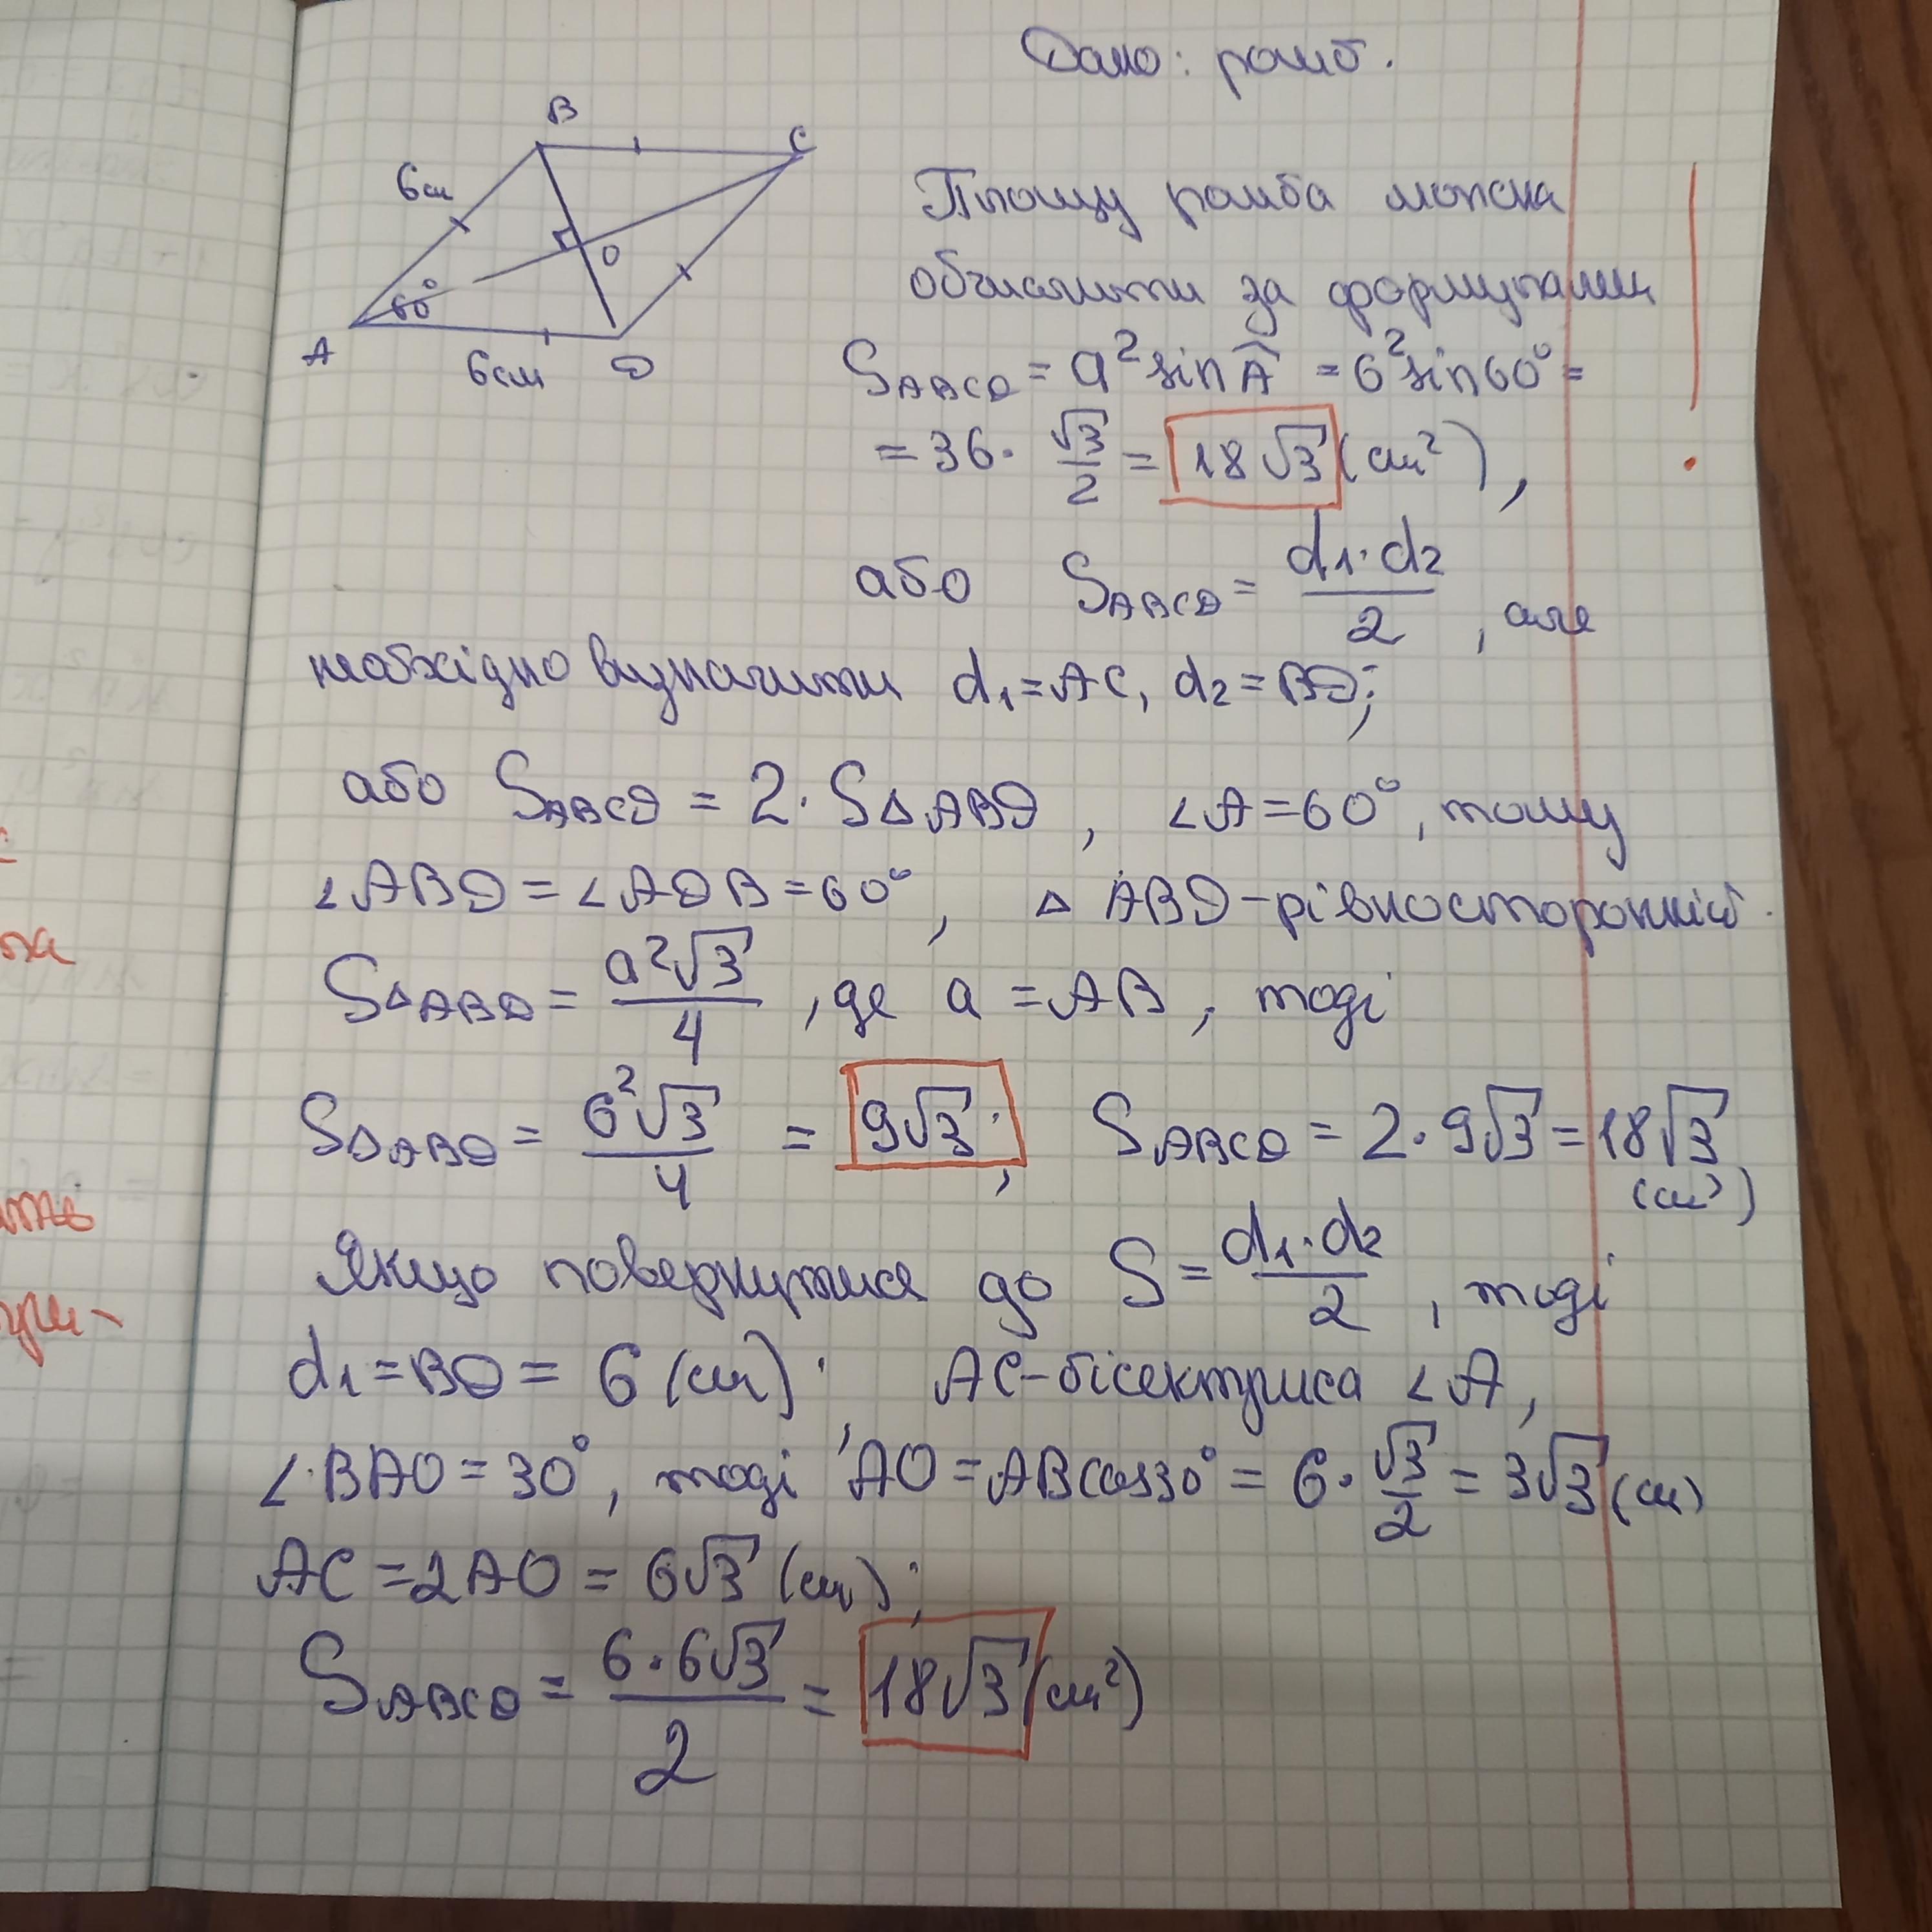 Дано: ромб.
B
C
6см
O
60°
A
6см
D
Площу ромба можна
обчислити за формулами
S_ABCD = a² sin Â = 6² sin 60° =
= 36 · √3/2 = 18√3 (см²),
або S_ABCD = d₁·d₂/2, але
необхідно визначити d₁ = AC, d₂ = BD;
або S_ABCD = 2·S△ABD, ∠A = 60°, тому
∠ABD = ∠ADB = 60°, △ABD - рівносторонній.
S△ABD = a²√3/4, де a = AB, тоді
S△ABD = 6²√3/4 = 9√3; S_ABCD = 2·9√3 = 18√3
(см²)
Якщо повернутися до S = d₁·d₂/2, тоді
d₁ = BD = 6 (см); AC - бісектриса ∠A,
∠BAO = 30°, тоді AO = AB cos 30° = 6 · √3/2 = 3√3 (см)
AC = 2AO = 6√3 (см);
S_ABCD = 6·6√3/2 = 18√3 (см²)